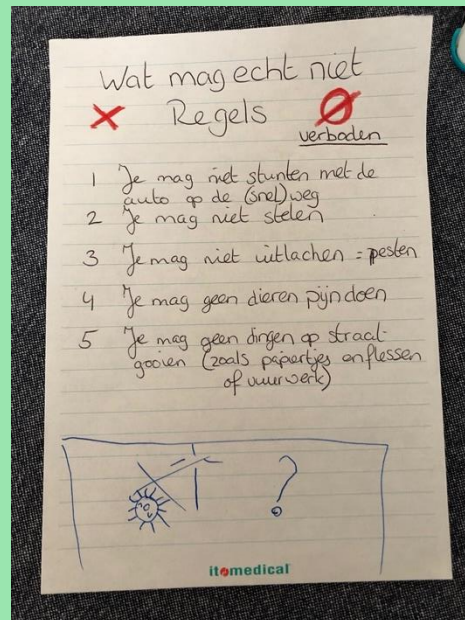 Wat mag echt niet
Regels
verboden
1 Je mag niet stunten met de
auto op de (snel)weg
2 Je mag niet stelen
3 Je mag niet uitlachen = pesten
4 Je mag geen dieren pijn doen
5 Je mag geen dingen op straat
gooien (zoals papiertjes en flessen
of vuurwerk)
?
itomedical